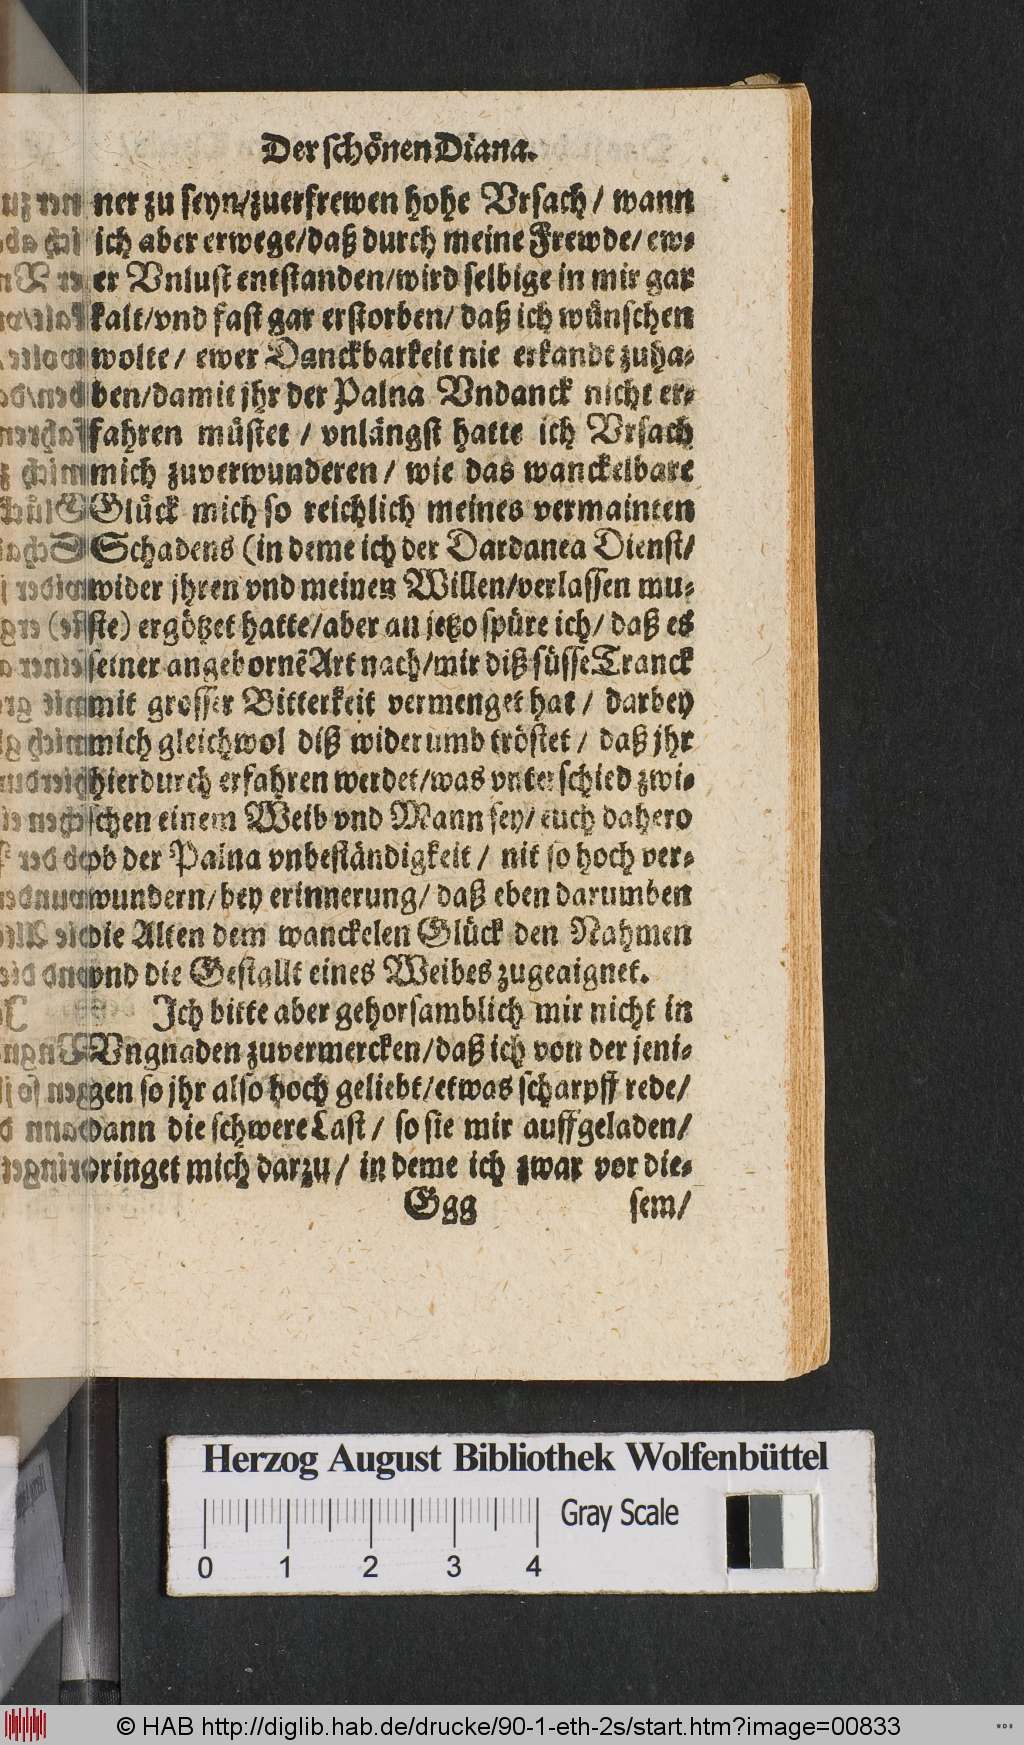 Der schönen Diana.
ner zu seyn/zuerfrewen hohe Vrsach / wann
ich aber erwege/daß durch meine Frewde/ ew-
er Vnlust entstanden/wird selbige in mir gar
kalt/vnd fast gar erstorben/ daß ich wünschen
wolte / ewer Danckbarkeit nie erkandt zuha-
ben/damit jhr der Palna Vndanck nicht er-
fahren müstet / vnlängst hatte ich Vrsach
mich zuverwunderen / wie das wanckelbare
Glück mich so reichlich meines vermainten
Schadens (in deme ich der Dardanea Dienst/
wider jhren vnd meinen Willen/verlassen mu-
ste) ergötzet hatte/aber an jetzo spüre ich/ daß es
seiner angebornẽ Art nach/mir diß süsse Tranck
mit grosser Bitterkeit vermenget hat / darbey
mich gleichwol diß widerumb tröstet / daß jhr
hierdurch erfahren werdet/was vnterschied zwi-
schen einem Weib vnd Mann sey/ euch dahero
ob der Palna vnbeständigkeit / nit so hoch ver-
wundern/bey erinnerung/ daß eben darumben
die Alten dem wanckelen Glück den Nahmen
vnd die Gestallt eines Weibes zugeaignet.
Ich bitte aber gehorsamblich mir nicht in
Vngnaden zuvermercken/daß ich von der jeni-
gen so jhr also hoch geliebt/etwas scharpff rede/
dann die schwere Last / so sie mir auffgeladen/
bringet mich darzu / in deme ich zwar vor die-
Ggg sem/
Herzog August Bibliothek Wolfenbüttel
Gray Scale
0 1 2 3 4
© HAB http://diglib.hab.de/drucke/90-1-eth-2s/start.htm?image=00833